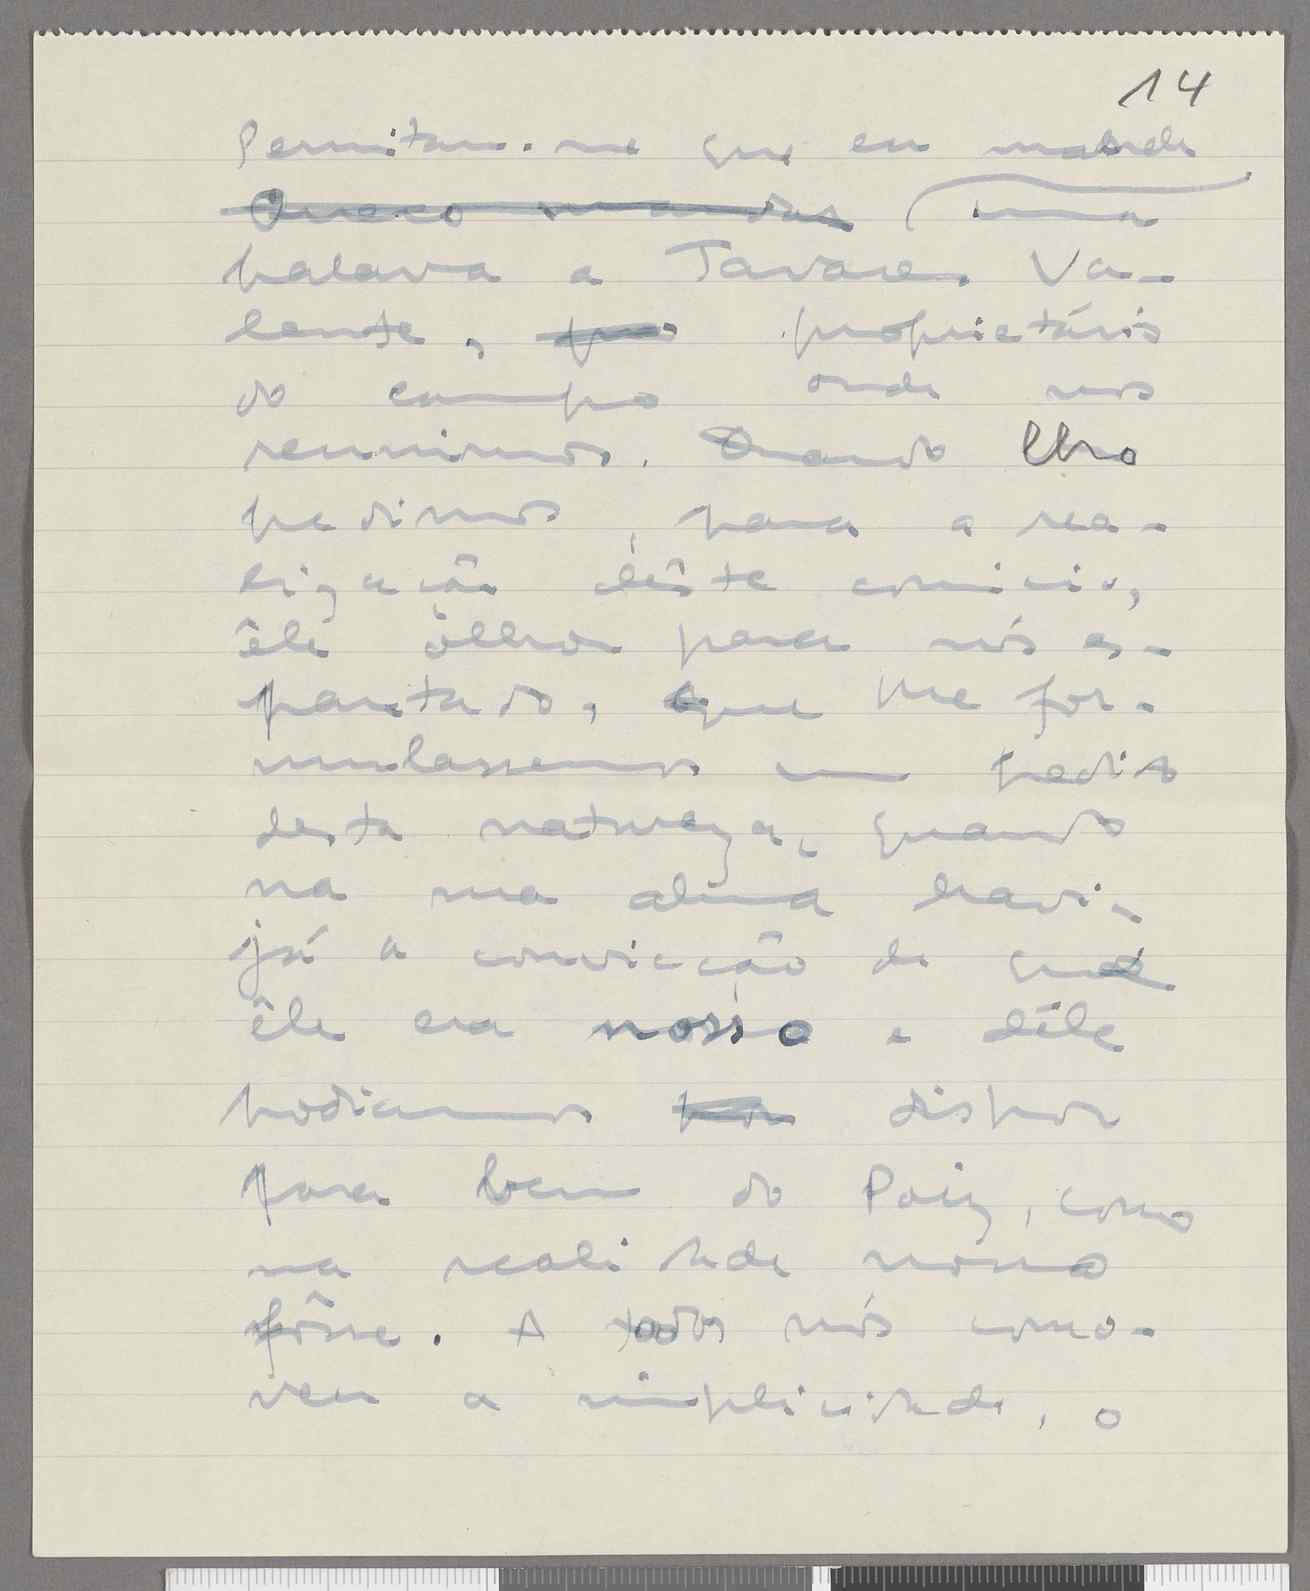 14
Permitam-me que eu mande
Quero mandar uma
palavra a Tavares Va-
lente, pro proprietário
do campo onde nos
reunimos. Quando lho
pedimos, para a rea-
lização dêste comicio,
êle olhou para nós es-
pantado, que lhe for-
mulassemos um pedido
desta natureza, quando
na sua alma havia
já a convicção de que
êle era nosso e dêle
podiamos por dispor
para bem do Paiz, como
na realidade nosso
fôsse. A todos nós como-
veu a simplicidade, o